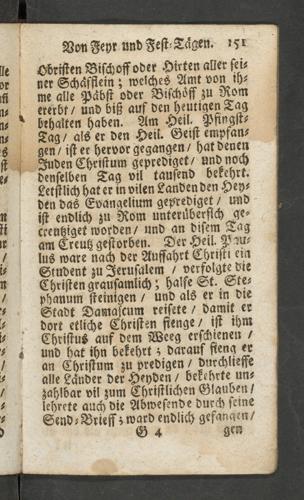 Von Feyr und Fest-Tägen. 151
Obristen Bischoff oder Hirten aller sei-
ner Schäfflein; welches Amt von ih-
me alle Päbst oder Bischöff zu Rom
ererbt / und biß auf den heutigen Tag
behalten haben. Am Heil. Pfingst-
Tag / als er den Heil. Geist empfan-
gen / ist er hervor gegangen / hat denen
Juden Christum geprediget / und noch
denselben Tag vil tausend bekehrt.
Letstlich hat er in vilen Landen den Hey-
den das Evangelium geprediget / und
ist endlich zu Rom untersich ge-
creutziget worden / und an disem Tag
am Creutz gestorben. Der Heil. Pau-
lus ware nach der Auffahrt Christi ein
Student zu Jerusalem / verfolgte die
Christen grausamlich; halffe St. Ste-
phanum steinigen / und als er in die
Stadt Damascum reisete / damit er
dort etliche Christen fienge / ist ihm
Christus auf dem Weeg erschienen /
und hat ihn bekehrt; darauf fieng er
an Christum zu predigen / durchlieffe
alle Länder der Heyden / bekehrte un-
zahlbar vil zum Christlichen Glauben /
lehrete auch die Abwesende durch seine
Send-Brieff; ward endlich gefangen /
G 4 gen